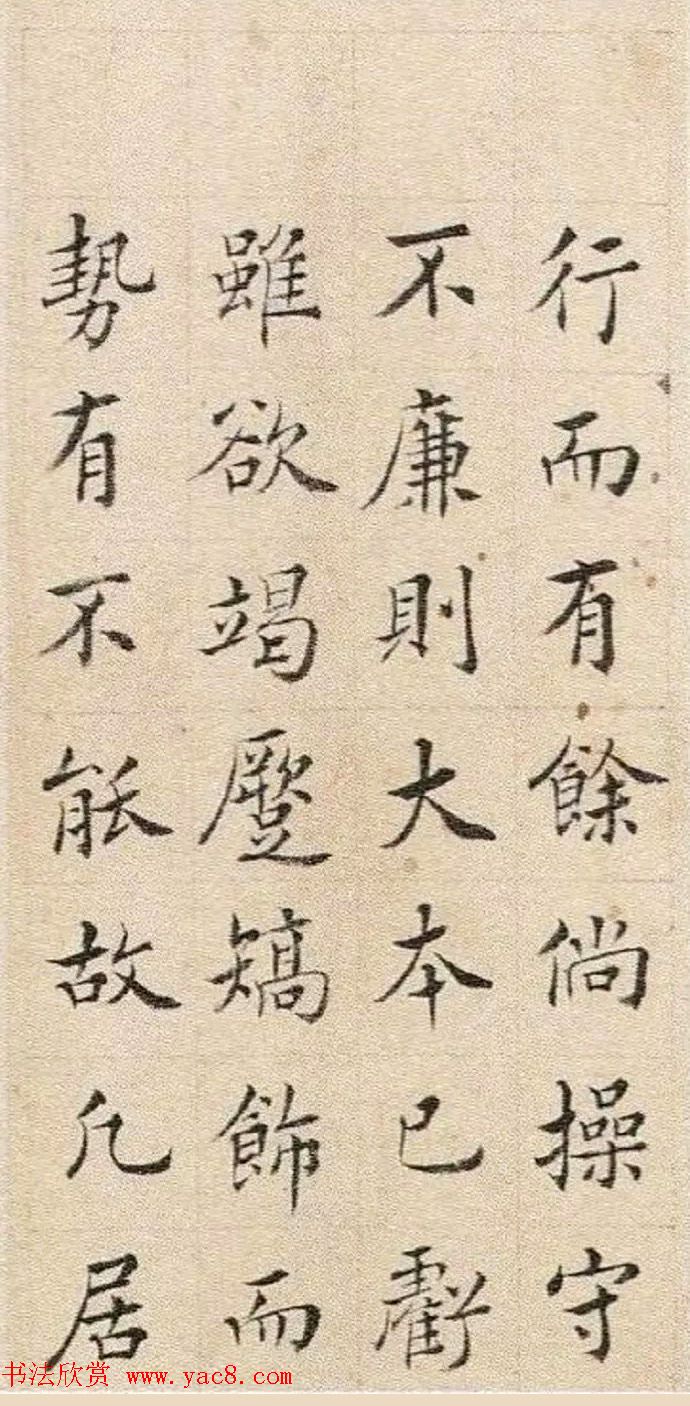 行而有餘倘操守
不廉則大本已虧
雖欲竭蹷矯飾而
勢有不能故凡居
书法欣赏 www.yac8.com